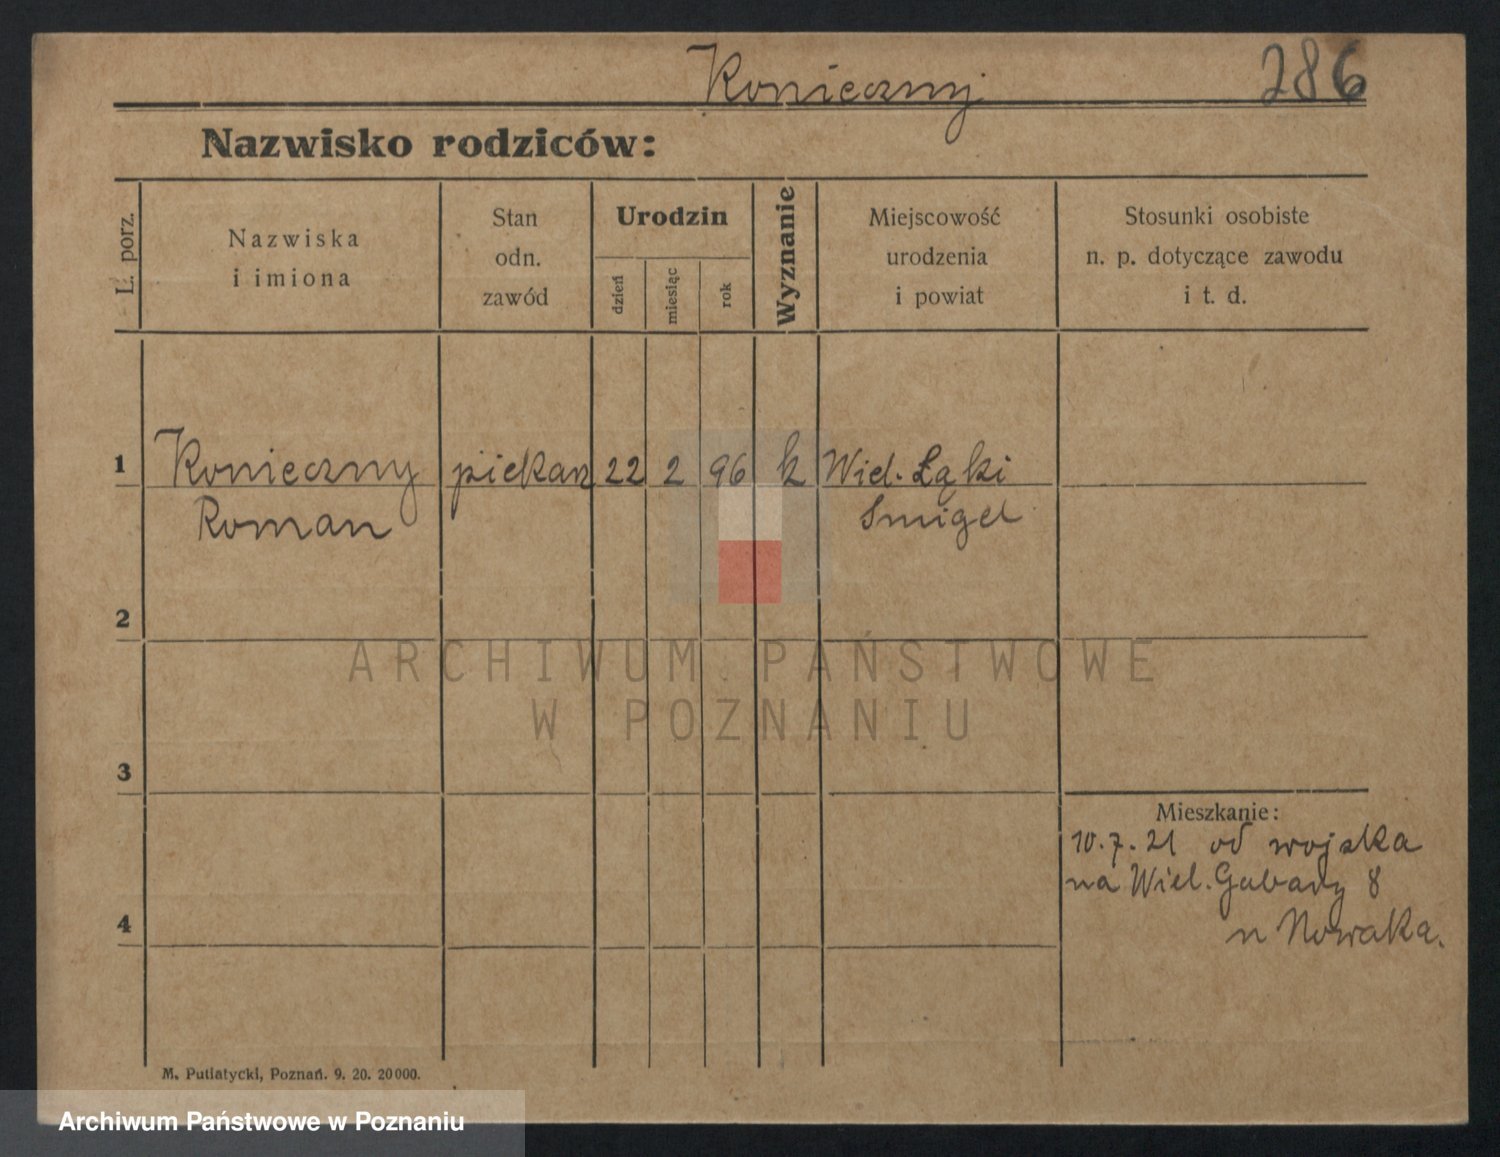 Konieczny 286
Nazwisko rodziców:
L. porz.
Nazwiska
i imiona
Stan
odn.
zawód
Urodzin
dzień
miesiąc
rok
Wyznanie
Miejscowość
urodzenia
i powiat
Stosunki osobiste
n. p. dotyczące zawodu
i t. d.
1 Konieczny piekarz 22 2 96 k Wiel. Łąki
Roman Smigel
2
ARCHIWUM PAŃSTWOWE
W POZNANIU
3
Mieszkanie:
10.7.21 od wojska
na Wiel. Garbary 8
4
u Nowaka.
M. Putiatycki, Poznań. 9. 20. 20000.
Archiwum Państwowe w Poznaniu